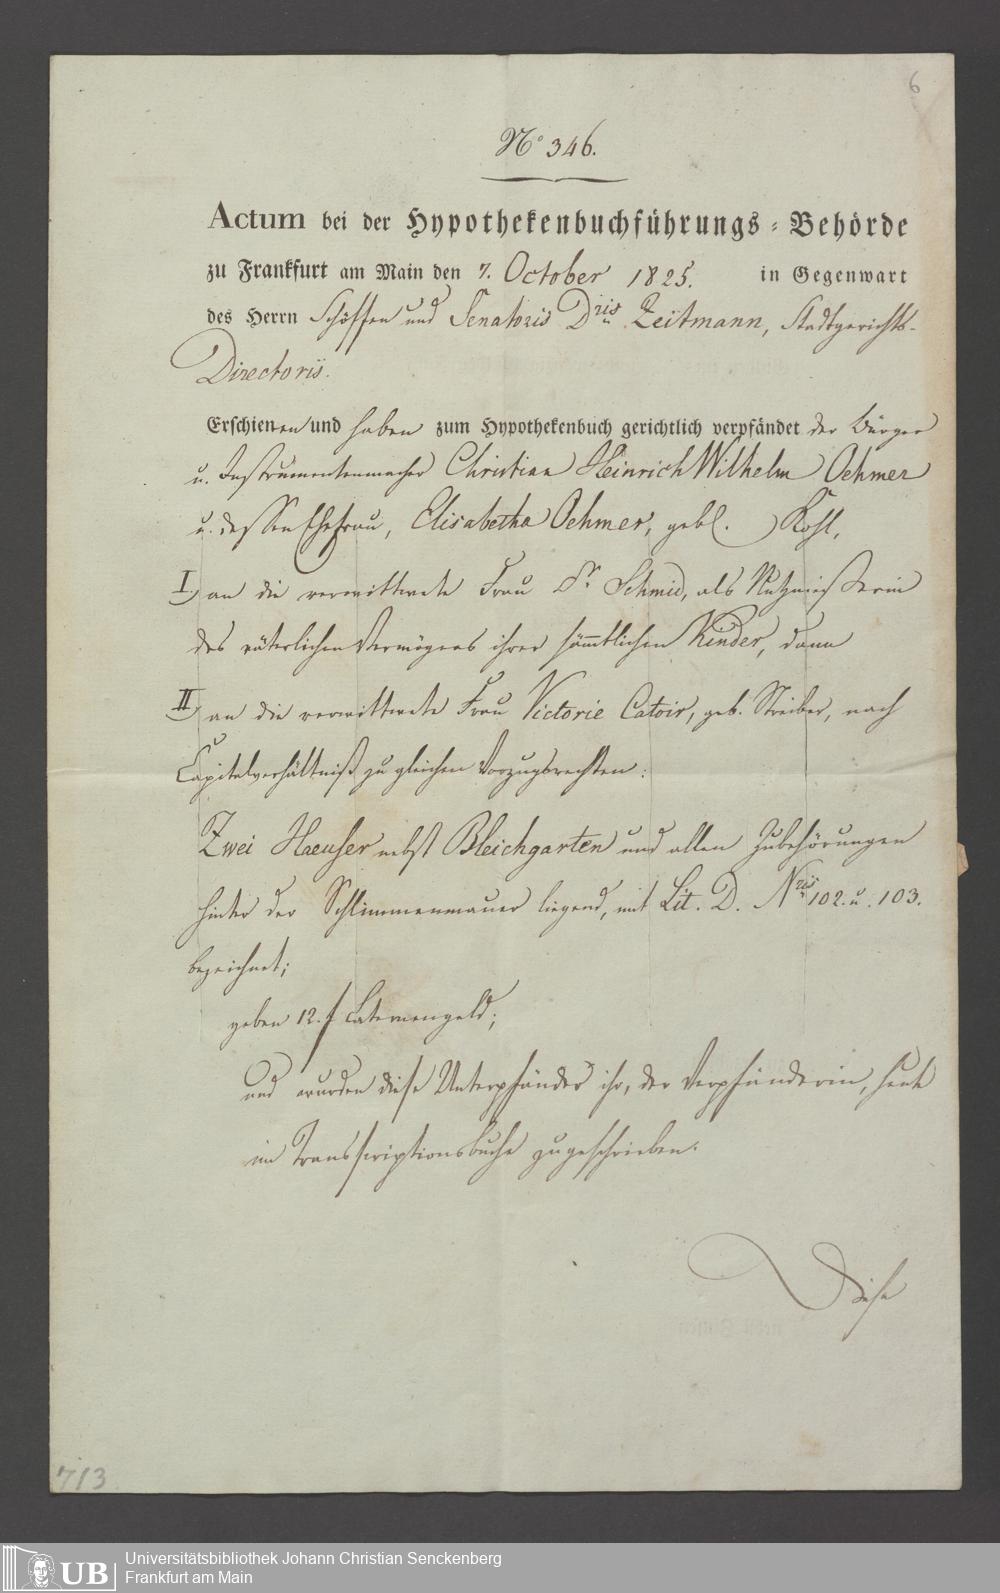 6
No 346.
Actum bei der Hypothekenbuchführungs-Behörde
zu Frankfurt am Main den 7. October 1825. in Gegenwart
des Herrn Schöffen und Senatoris Dris Zeitmann, Stadtgerichts-
Directoris.
Erschienen und haben zum Hypothekenbuch gerichtlich verpfändet der Bürger
u. Instrumentenmacher Christian Heinrich Wilhelm Oehmer
u. dessen Ehefrau, Elisabetha Oehmer, gebl. Kohl,
I.) an die verwittwete Frau Dr. Schmid, als Nutznießerin
des väterlichen Vermögens ihrer sämtlichen Kinder, dann
II.) an die verwittwete Frau Victorie Catoir, geb. Streiber, nach
Capitalverhältniß zu gleichen Vorzugsrechten:
Zwei Haeuser nebst Bleichgarten und allen Zubehörungen
hinter der Schlimmenmauer liegend, mit Lit. D. Nris 102. u. 103.
bezeichnet;
geben 12. f Laternengeld;
und wurden diese Unterpfänder ihr, der Verpfänderin, heute
im Transscriptionsbuche zugeschrieben.
Diese
713
UB
Universitätsbibliothek Johann Christian Senckenberg
Frankfurt am Main